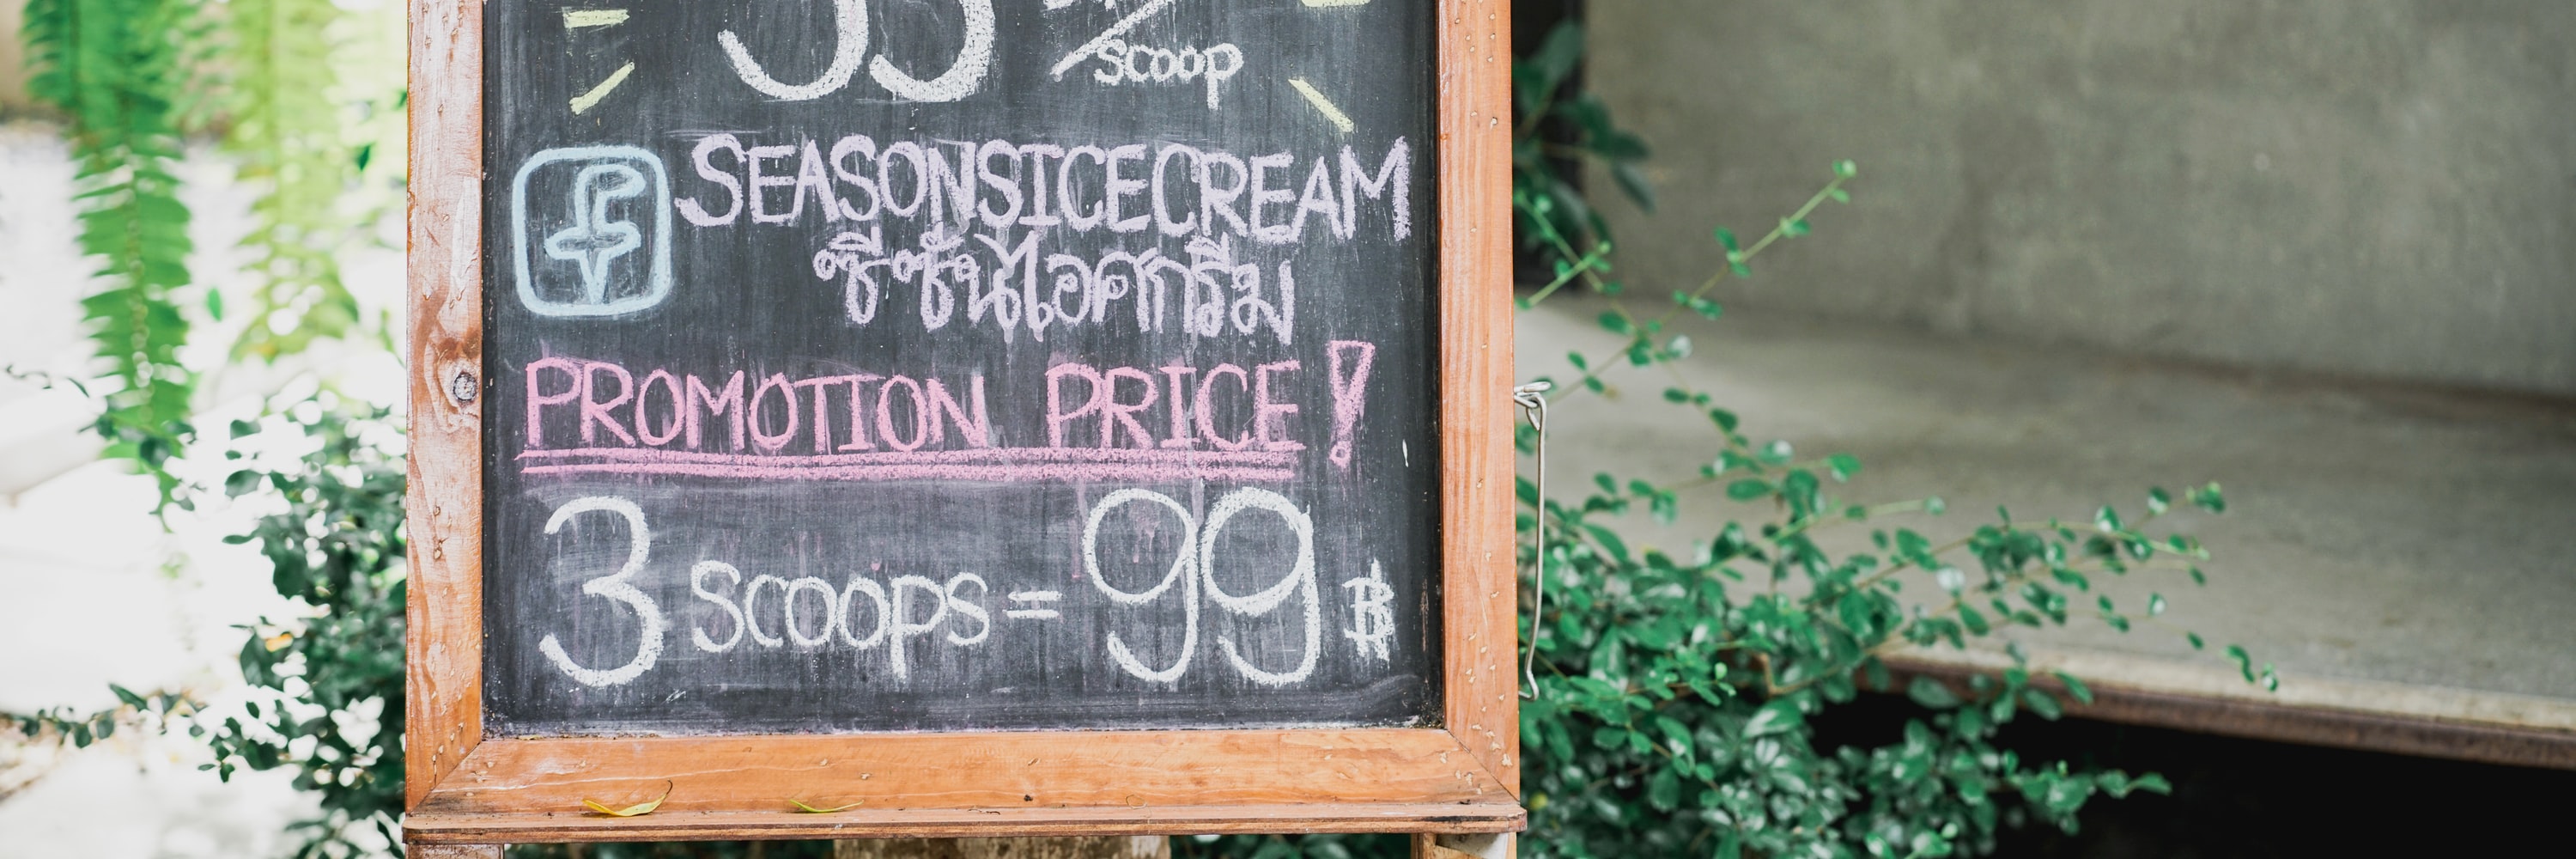 scoop
f SEASONSICECREAM
ซีซั่นไอศกรีม
PROMOTION PRICE!
3 scoops = 99 ฿